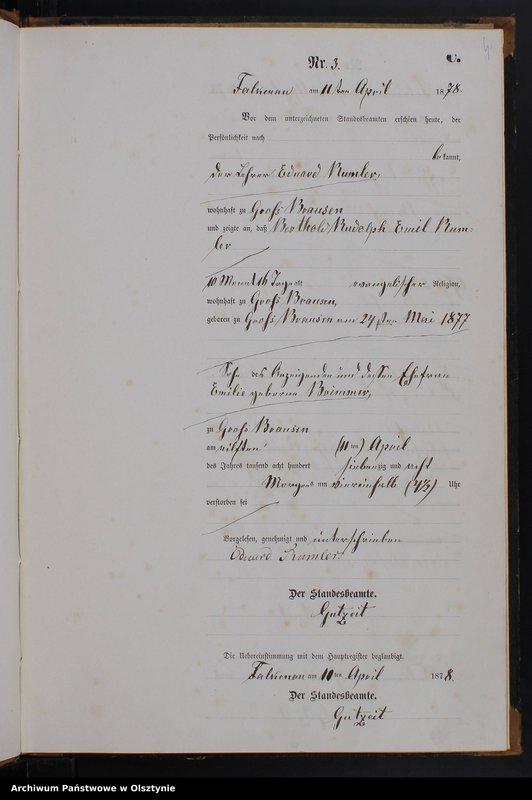 Nr. 3.
C.
Falkenau am 11ten April 1878.
Vor dem unterzeichneten Standesbeamten erschien heute, der
Persönlichkeit nach
bekannt,
der Lehrer Eduard Rumler,
wohnhaft zu Groß Brausen
und zeigte an, daß Berthold Rudolph Emil Rum-
ler
10 Monat 16 Tage alt evangelischer Religion,
wohnhaft zu Groß Brausen,
geboren zu Groß Brausen am 24sten Mai 1877
Sohn des Anzeigenden und dessen Ehefrau
Emilie geborne Brimmer,
zu Groß Brausen
am eilften (11ten) April
des Jahres tausend acht hundert siebenzig und acht
Morgens um viereinhalb (4½) Uhr
verstorben sei
Vorgelesen, genehmigt und unterschrieben
Eduard Rumler.
Der Standesbeamte.
Gutzeit
Die Uebereinstimmung mit dem Hauptregister beglaubigt.
Falkenau am 11ten April 1878.
Der Standesbeamte.
Gutzeit
Archiwum Państwowe w Olsztynie